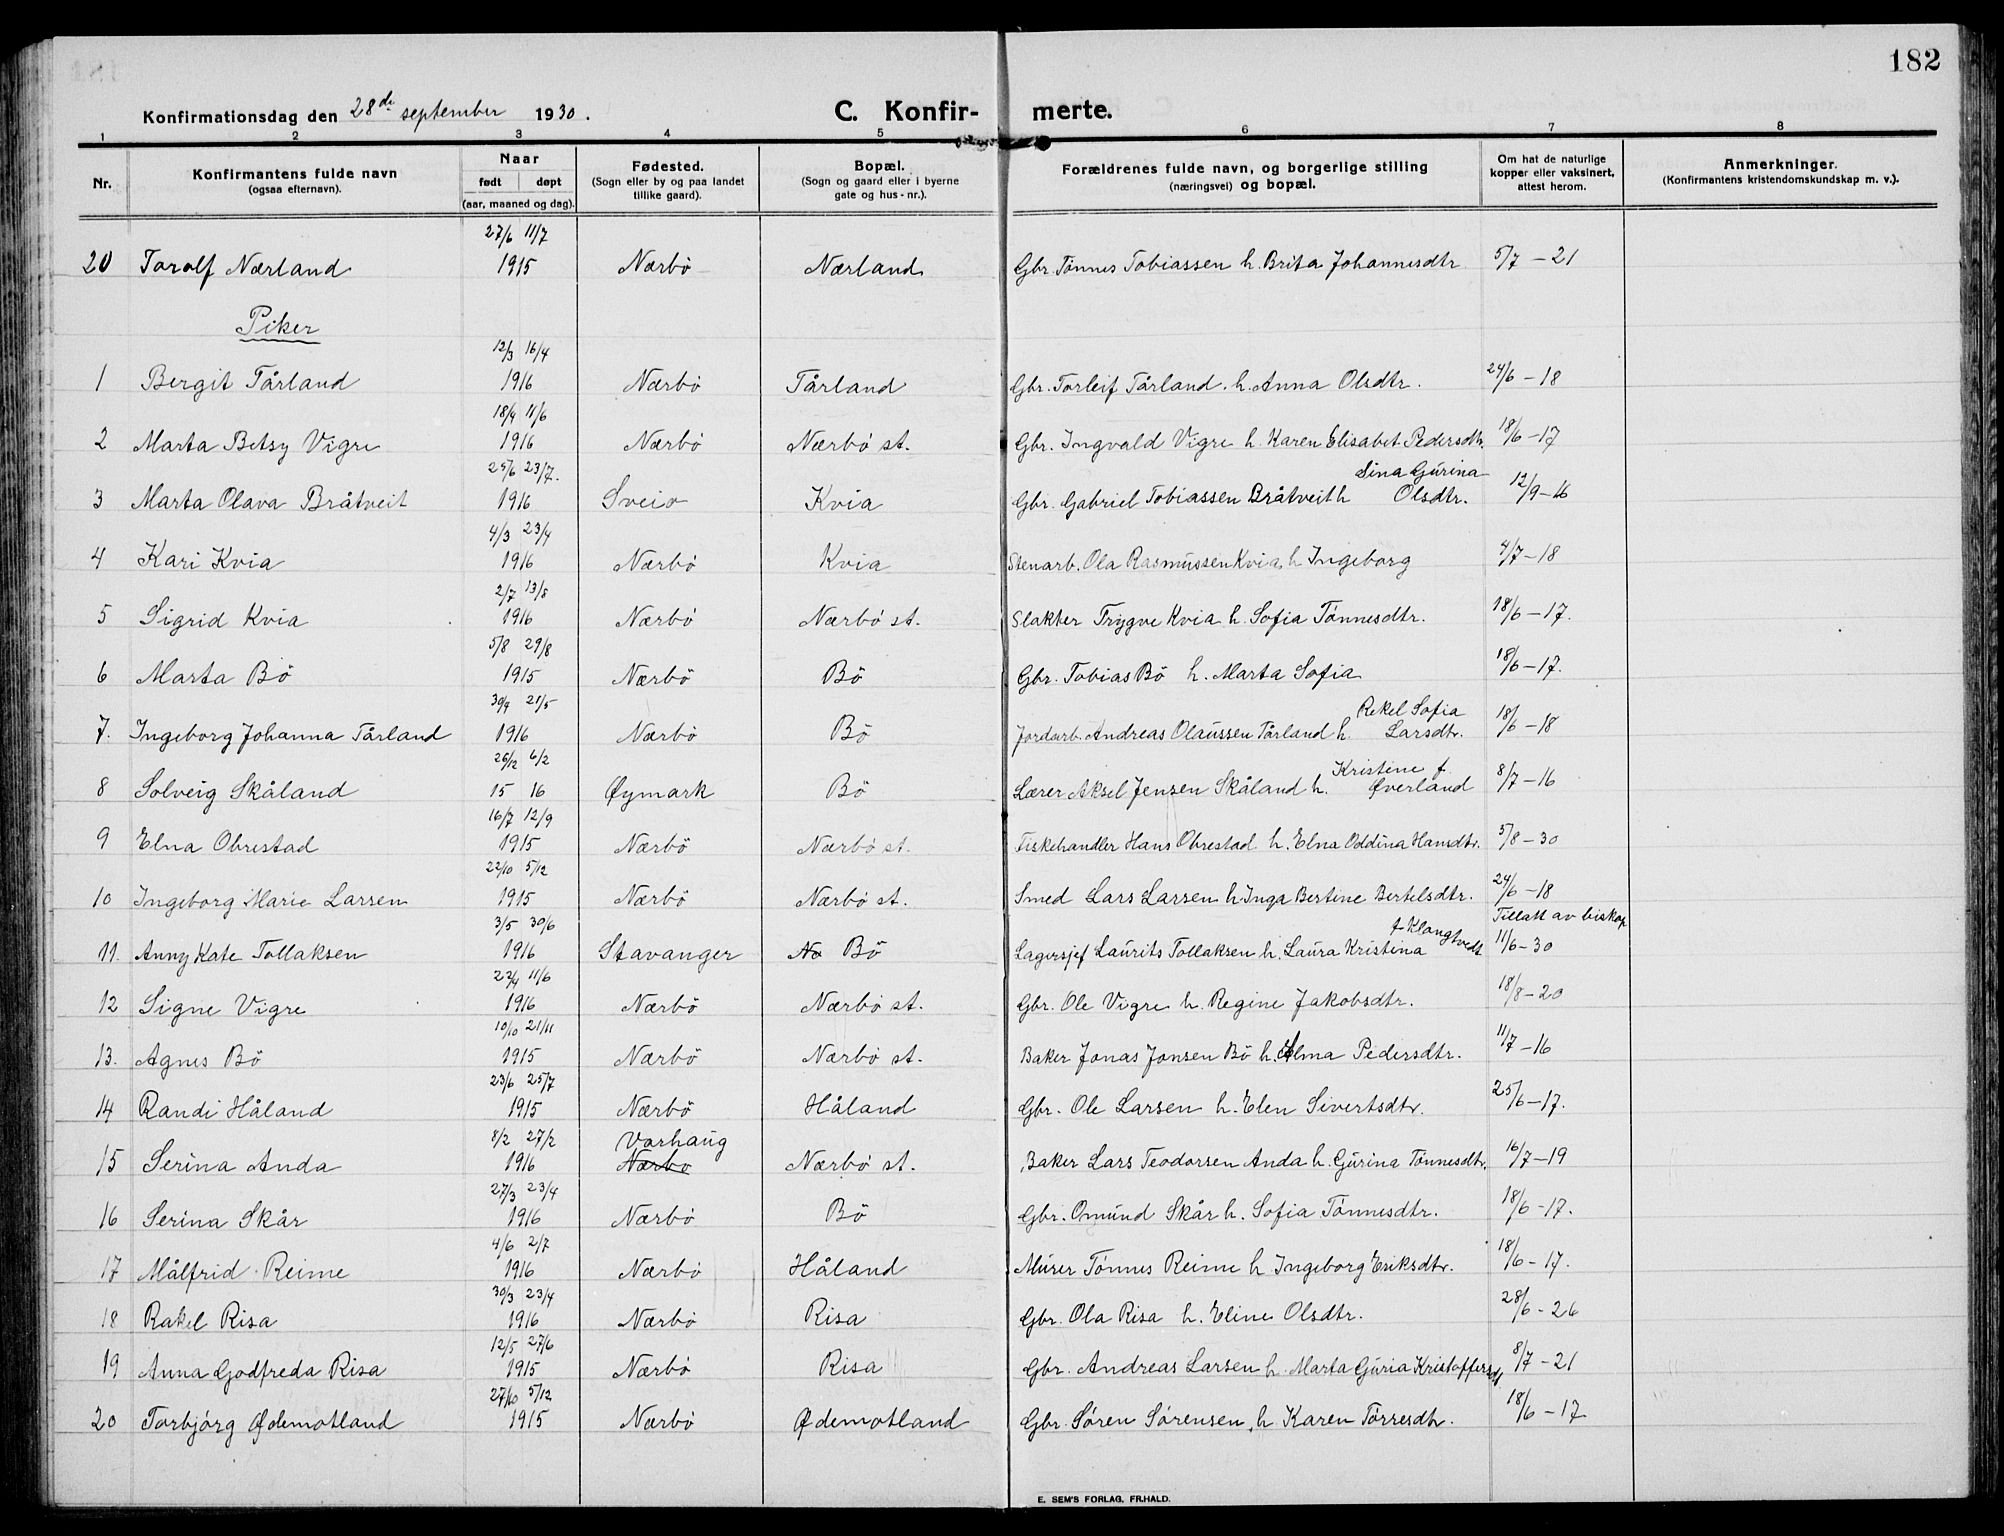 182
Konfirmationsdag den 28de september 1930. C. Konfir- merte.
1 2 3 4 5 6 7 8
Nr. Konfirmantens fulde navn (ogsaa efternavn). Naar født døpt (aar, maaned og dag). Fødested. (Sogn eller by og paa landet tillike gaard). Bopæl. (Sogn og gaard eller i byerne gate og hus-nr.). Forældrenes fulde navn, og borgerlige stilling (næringsvei) og bopæl. Om hat de naturlige kopper eller vaksinert, attest herom. Anmerkninger. (Konfirmantens kristendomskundskap m. v.).
27/6 11/7
20 Torolf Nærland 1915 Nærbö Nærland Gbr. Tönnes Tobiassen h. Brita Johannesdtr. 5/7 - 21
Piker
12/3 16/4
1 Bergit Tårland 1916 Nærbö Tårland Gbr. Torleif Tårland. h. Anna Olsdtr. 24/6 - 18
18/4 11/6
2 Marta Betsy Vigre 1916 Nærbö Nærbö st. Gbr. Ingvald Vigre h. Karen Elisabet Pedersdtr. 18/6 - 17
25/6 23/7. Sina Gurina
3 Marta Olava Bråtveit 1916 Sveio Kvia Gbr. Gabriel Tobiassen Bråtveit h Olsdtr. 12/9 - 16
4/3 23/4
4 Kari Kvia 1916 Nærbö Kvia Stenarb. Ola Rasmussen Kvia, h Ingeborg 4/7 - 18
2/7 13/8
5 Sigrid Kvia 1916 Nærbö Nærbö st. Slakter Trygve Kvia h. Sofia Tönnesdtr. 18/6 - 17.
5/8 29/8
6 Marta Bö 1915 Nærbö Bö Gbr. Tobias Bö h. Marta Sofia 18/6 - 17.
30/4 21/5 Rekel Sofia
7. Ingeborg Johanna Tårland 1916 Nærbö Bö Jordarb. Andreas Olaussen Tårland h. Larsdtr. 18/6 - 18
26/12 6/2 Kristine f.
8 Solveig Skåland 15 16 Øymark Bö Lærer Aksel Jensen Skåland h. Øverland 8/7 - 16
16/7 12/9
9 Elna Obrestad 1915 Nærbö Nærbö st. Fiskehandler Hans Obrestad h. Elna Oddina Hansdtr. 5/8 - 30
22/10 5/12
10 Ingeborg Marie Larsen 1915 Nærbö Nærbö st. Smed Lars Larsen h Inga Bertine Bertelsdtr. 24/6 - 18
3/5 30/6 f Klongtvedt Tillatt av biskop
11. Anny Kate Tollaksen 1916 Stavanger Næ Bö Lagersjef Laurits Tollaksen h. Laura Kristina 11/6 - 30
23/4 11/6
12 Signe Vigre 1916 Nærbö Nærbö st. Gbr. Ole Vigre h. Regine Jakobsdtr. 18/8 - 20
10/10 21/11
13. Agnes Bö 1915 Nærbö Nærbö st. Baker Jonas Jonsen Bö h. Alma Pedersdtr. 11/7 - 16
23/6 25/7
14 Randi Håland 1915 Nærbö Håland Gbr. Ole Larsen h. Elen Sivertsdtr. 25/6 - 17.
8/2 27/2 Varhaug
15 Serina Anda 1916 Nærbö Nærbö st. Baker Lars Teodorsen Anda h. Gurina Tönnesdtr. 16/7 - 19
27/3 23/4
16 Serina Skår 1916 Nærbö Bö Gbr. Omund Skår h. Sofia Tönnesdtr. 18/6 - 17.
4/6 2/7
17 Målfrid Reime 1916 Nærbö Håland Murer Tönnes Reime h Ingeborg Eriksdtr. 18/6 - 17.
30/3 23/4
18 Rakel Risa 1916 Nærbö Risa Gbr. Ola Risa h. Eline Olsdtr. 28/6 - 26
12/5 27/6
19 Anna Godfreda Risa 1915 Nærbö Risa Gbr. Andreas Larsen h. Marta Guria Kristoffersdt. 8/7 - 21
27/10 5/12
20 Torbjörg Ødemotland 1915 Nærbö Ødemotland Gbr. Sören Sörensen, h Karen Törresdtr. 18/6 - 17
E. SEM'S FORLAG, FR.HALD.